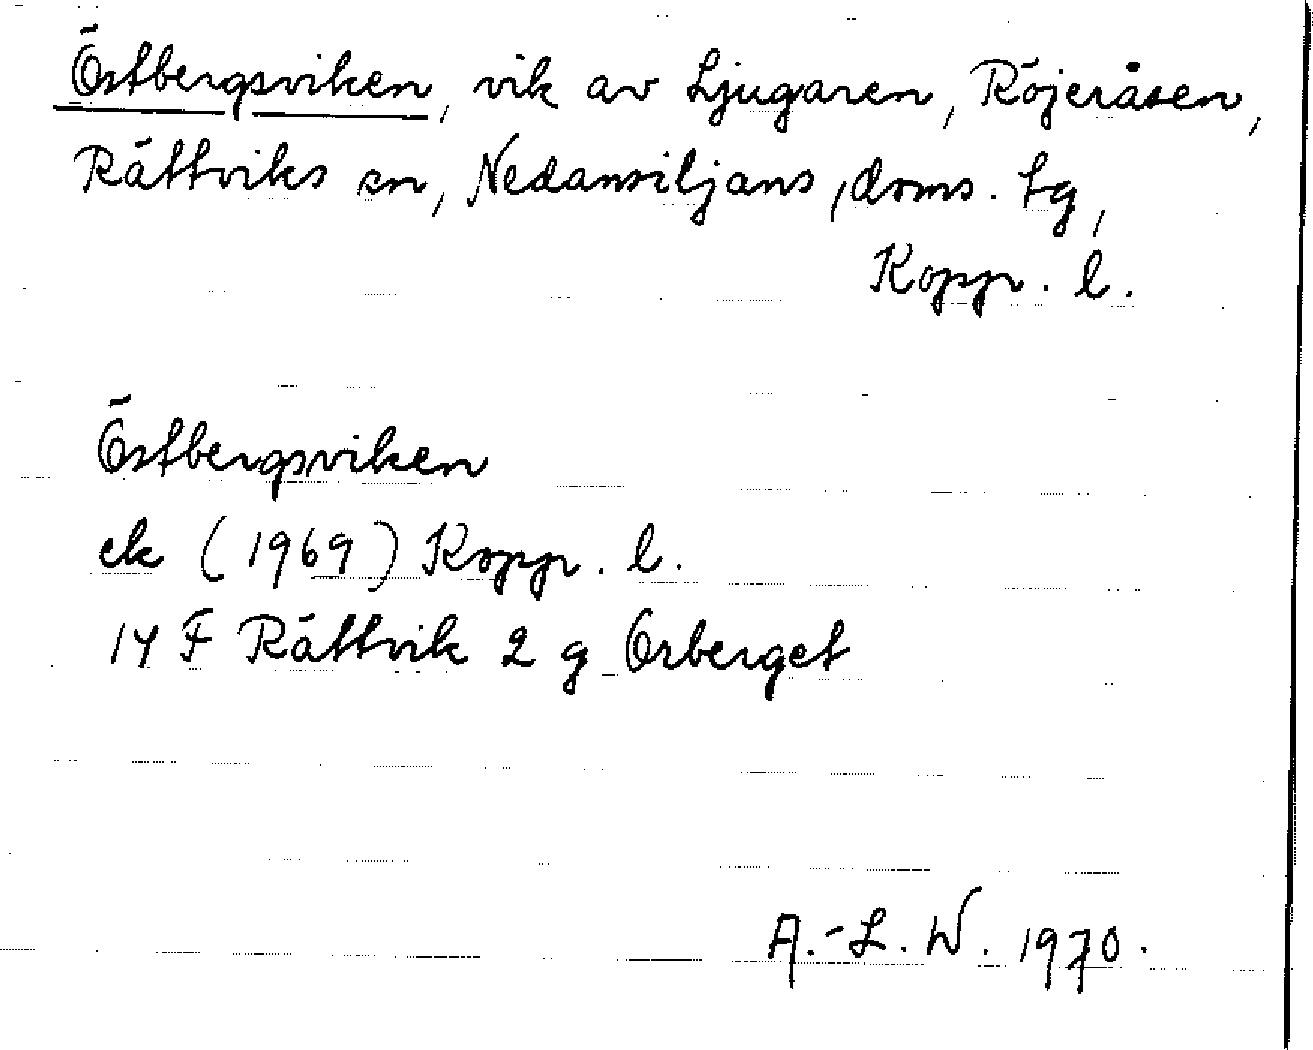 Östbergsviken, vik av Ljugaren, Röjeråsen,
Rättviks sn, Nedansiljans, doms. tg,
Kopp. l.
Östbergsviken
ek (1969) Kopp. l.
14 F Rättvik 2 g Orberget
A.-L. W. 1970.